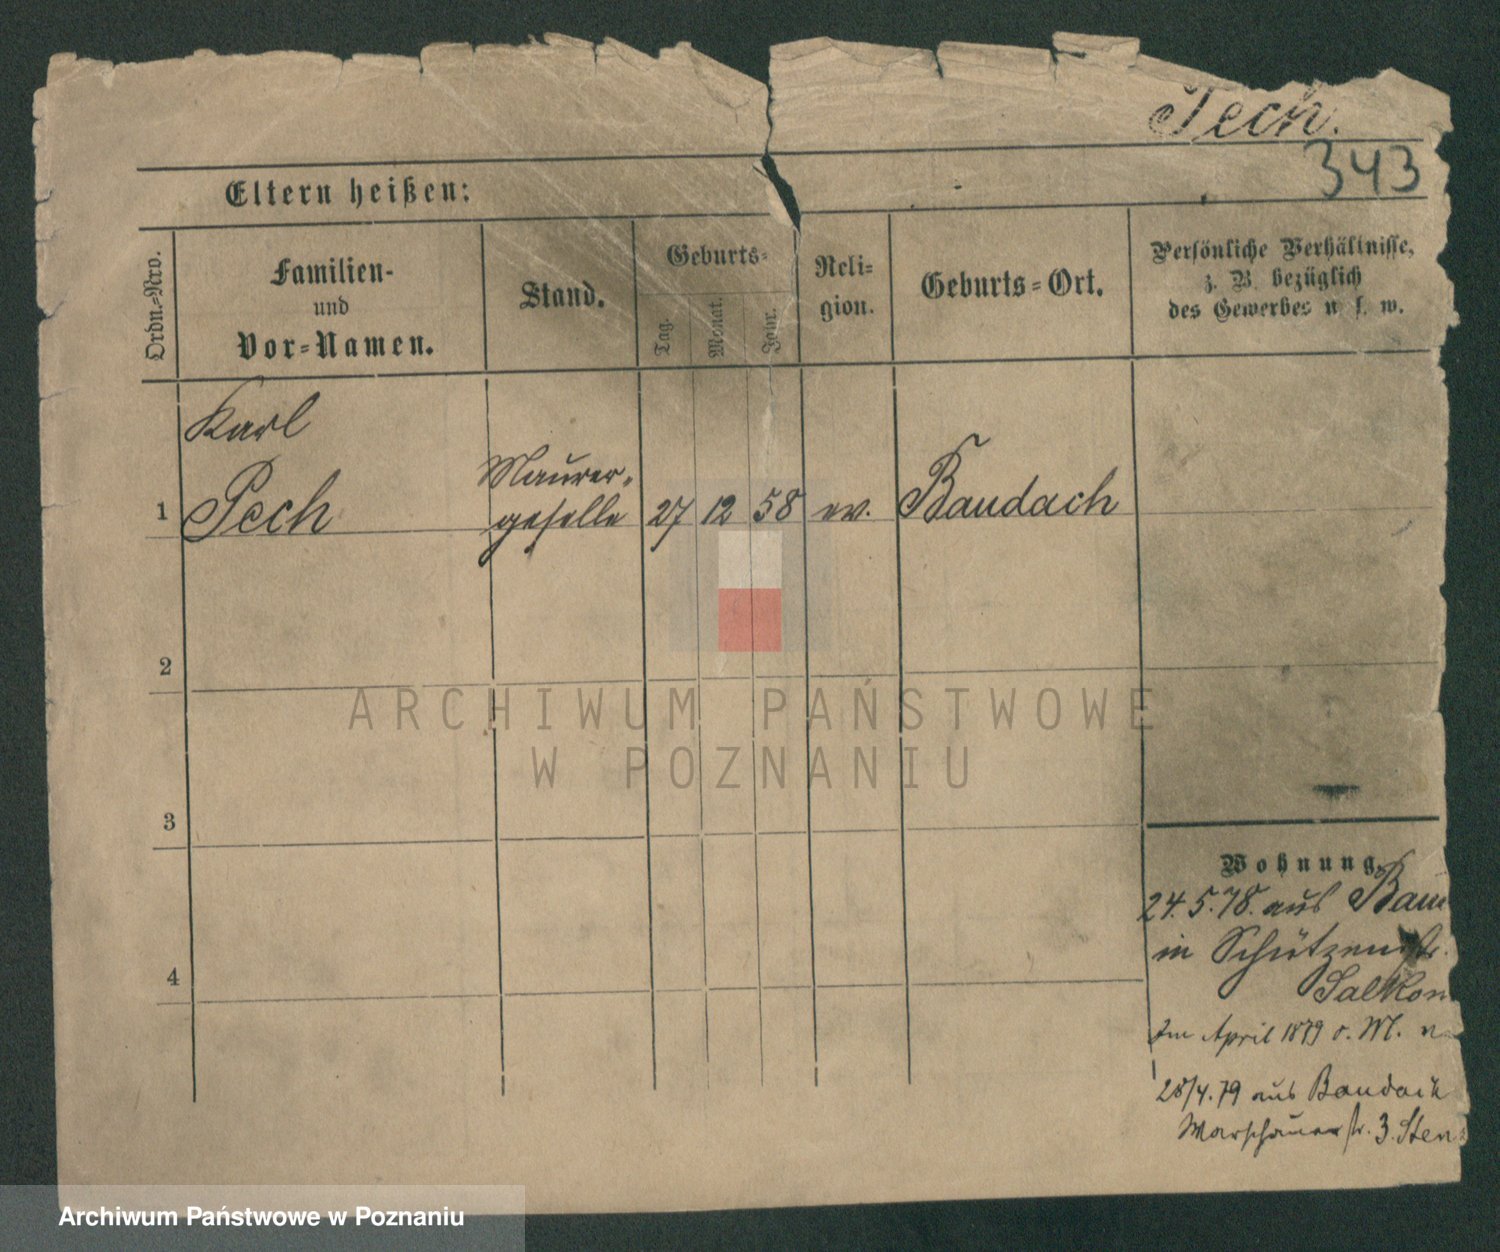 Pech.
343
Eltern heißen:
Ordn.=Nro.
Familien-
und
Vor=Namen.
Stand.
Geburts=
Tag.
Monat.
Jahr.
Reli=
gion.
Geburts=Ort.
Persönliche Verhältnisse,
z. B. bezüglich
des Gewerbes u. s. w.
Karl
Pech
Maurer=
geselle
1
27
12
58
ev.
Baudach
2
3
4
Wohnung.
24.5.78. aus Bau
in Schützenstr.
Salkow
Im April 1879 o. M.
28/4.79 aus Baudach
Warschauer str. 3. Sten
ARCHIWUM PAŃSTWOWE
W POZNANIU
Archiwum Państwowe w Poznaniu